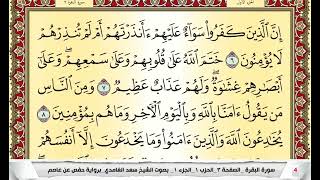 إِنَّ ٱلَّذِينَ كَفَرُوا۟ سَوَآءٌ عَلَيْهِمْ ءَأَنذَرْتَهُمْ أَمْ لَمْ تُنذِرْهُمْ
لَا يُؤْمِنُونَ ٦ خَتَمَ ٱللَّهُ عَلَىٰ قُلُوبِهِمْ وَعَلَىٰ سَمْعِهِمْ ۖ وَعَلَىٰٓ
أَبْصَٰرِهِمْ غِشَٰوَةٌ ۖ وَلَهُمْ عَذَابٌ عَظِيمٌ ٧ وَمِنَ ٱلنَّاسِ
مَن يَقُولُ ءَامَنَّا بِٱللَّهِ وَبِٱلْيَوْمِ ٱلْءَاخِرِ وَمَا هُم بِمُؤْمِنِينَ ٨
يُخَٰدِعُونَ ٱللَّهَ وَٱلَّذِينَ ءَامَنُوا۟ وَمَا يَخْدَعُونَ إِلَّآ أَنفُسَهُمْ
سورة البقرة . الصفحة ٣ . الحزب ١ . الجزء ١ . بصوت الشيخ سعد الغامدي برواية حفص عن عاصم
4